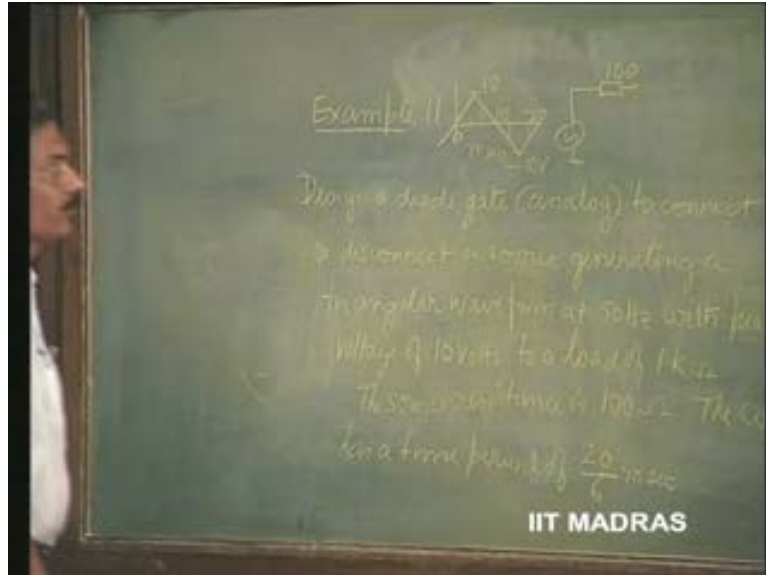 Example 11
10
100
0
10
20
m sec
-10V
Design a diode gate (analog) to connect
& disconnect a source generating a
triangular waveform at 50Hz with pea
voltage of 10 volts to a load of 1KΩ
The source resistance is 100Ω The
has a time period of 20/6 m sec
IIT MADRAS